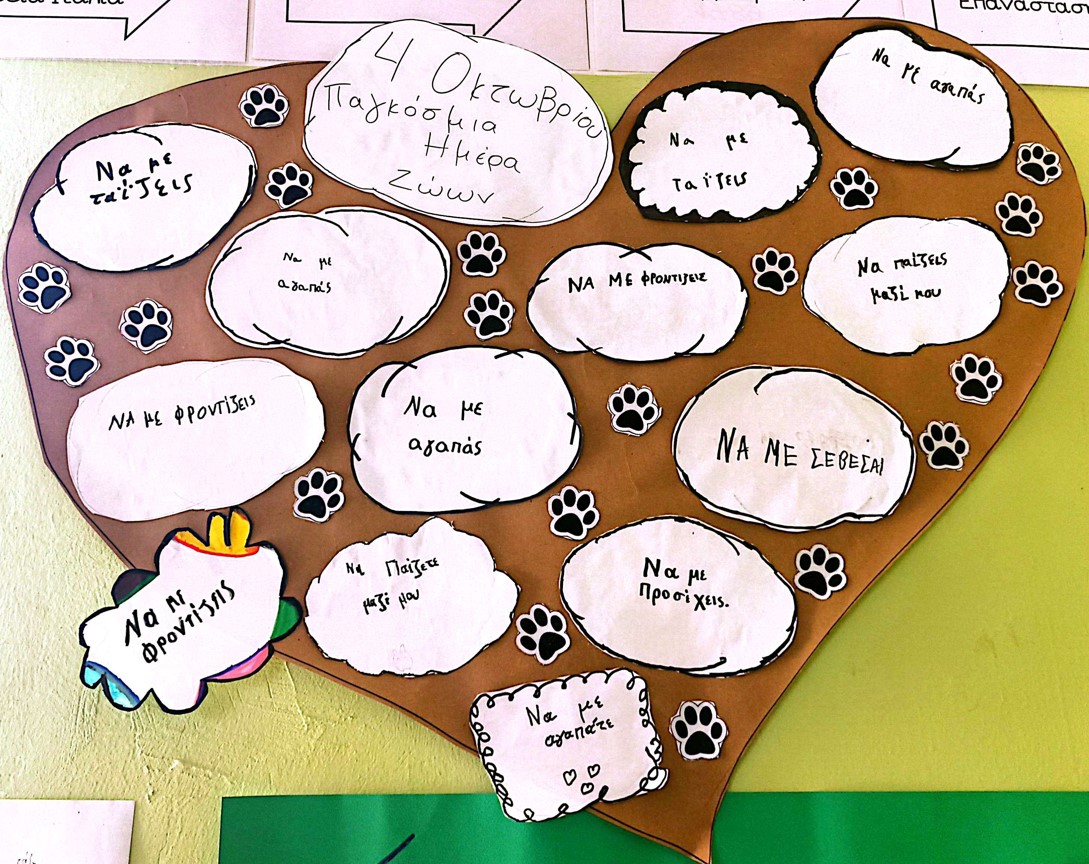 Επανάσταση
4 Οκτωβρίου
Παγκόσμια
Ημέρα
Ζώων
Να με αγαπάς
Να με
ταΐζεις
Να με
ταΐζεις
Να με
αγαπάς
ΝΑ ΜΕ φροντιζεις
Να παίζεις
μαζί μου
ΝΑ ΜΕ φροντίζεις
Να με
αγαπάς
ΝΑ ΜΕ ΣΕΒΕΣΑΙ
Να
φροντίζεις
Να Παίζετε
μαζί μου
Να με
Προσέχεις.
Να με
αγαπάτε